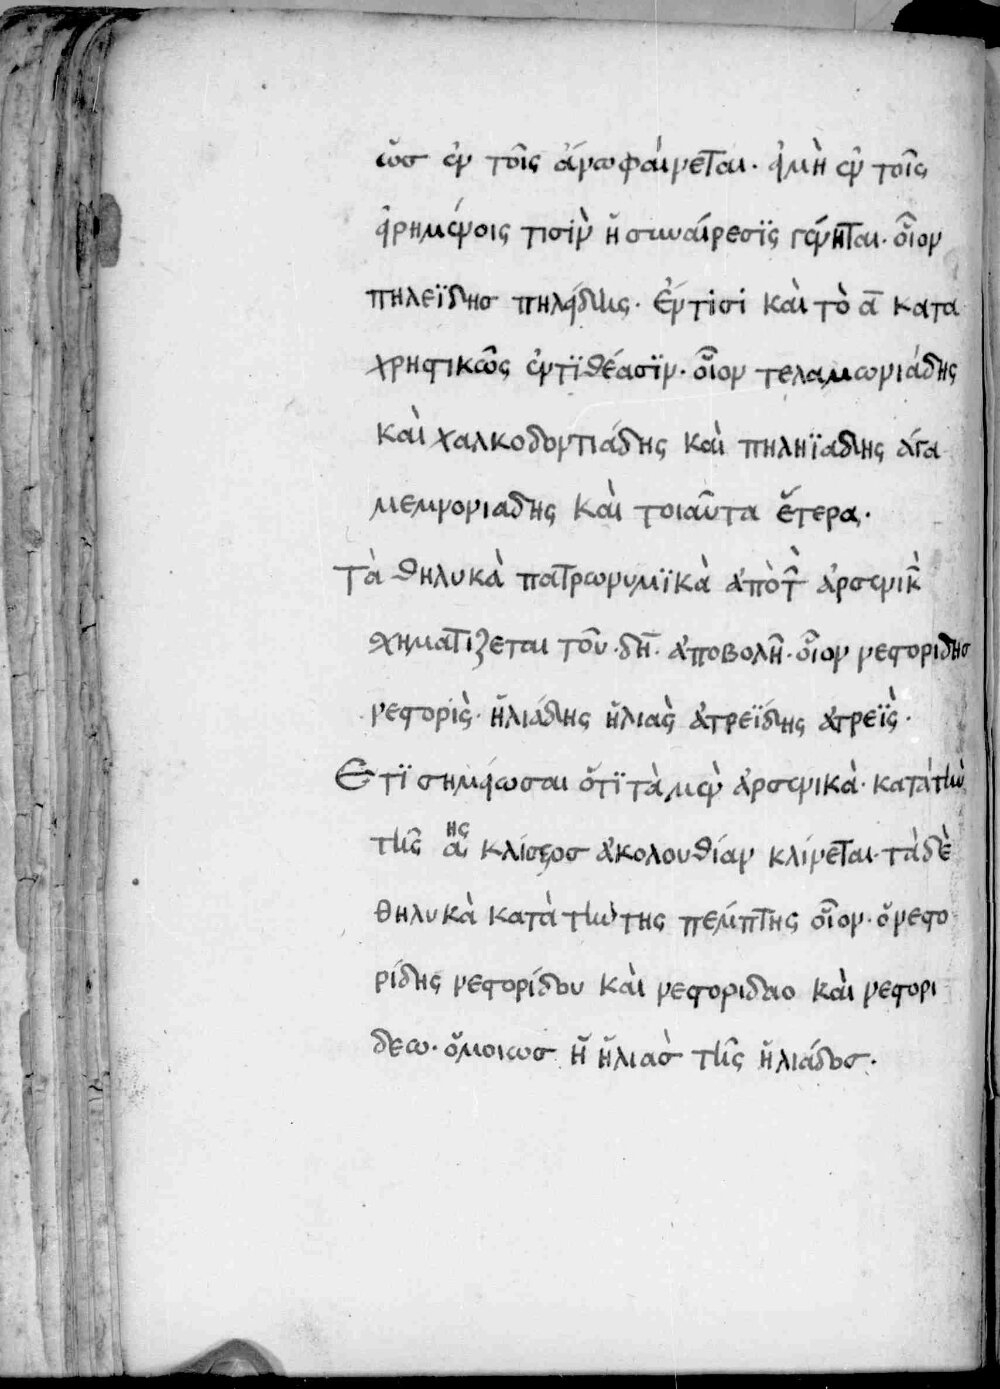 ὧσ ἐν τοῖς ἄνω φαίνεται· εἰμὴ ἐν τοῖς
εἰρημένοις τισὶν ἡ συναίρεσϊς γένηται· οἷον
πηλεΐδησ πηλείδης· ἔντισι καὶ τὸ α̅ κατα
χρηστικῶς ἐντϊθέασϊν· οἷον τελαμωνιάδης
καὶ χαλκοδοντιάδης καὶ πηληϊαδης ἀγα
μεμνονιαδης καὶ τοιαῦτα ἕτερα·
Τὰ θηλυκὰ πατρωνυμϊκὰ ἀπὸ τῶν ἀρσενικῶν
σχηματίζεται τοῦ· δη· ἀποβολῆ· οἷον νεστοριδησ
νεστορὶς· ἡλιάδης ἡλιὰς ἀτρεΐδης ἀτρεῒς·
Ετϊ σημείωσαι ὅτϊ τὰ μεν ἀρσενικὰ· κατὰ τὴν
τῆς αης κλίσεοσ ἀκολουθίαν κλίνεται· τὰ δὲ
θηλυκὰ κατὰ τὴν της πέμπτης οἷον· ὁ νεστο
ρίδης νεστορίδου καὶ νεστοριδαο καὶ νεστορι
δεω· ὅμοιωσ ἡ ἡλιὰσ τῆς ἡλιάδοσ·